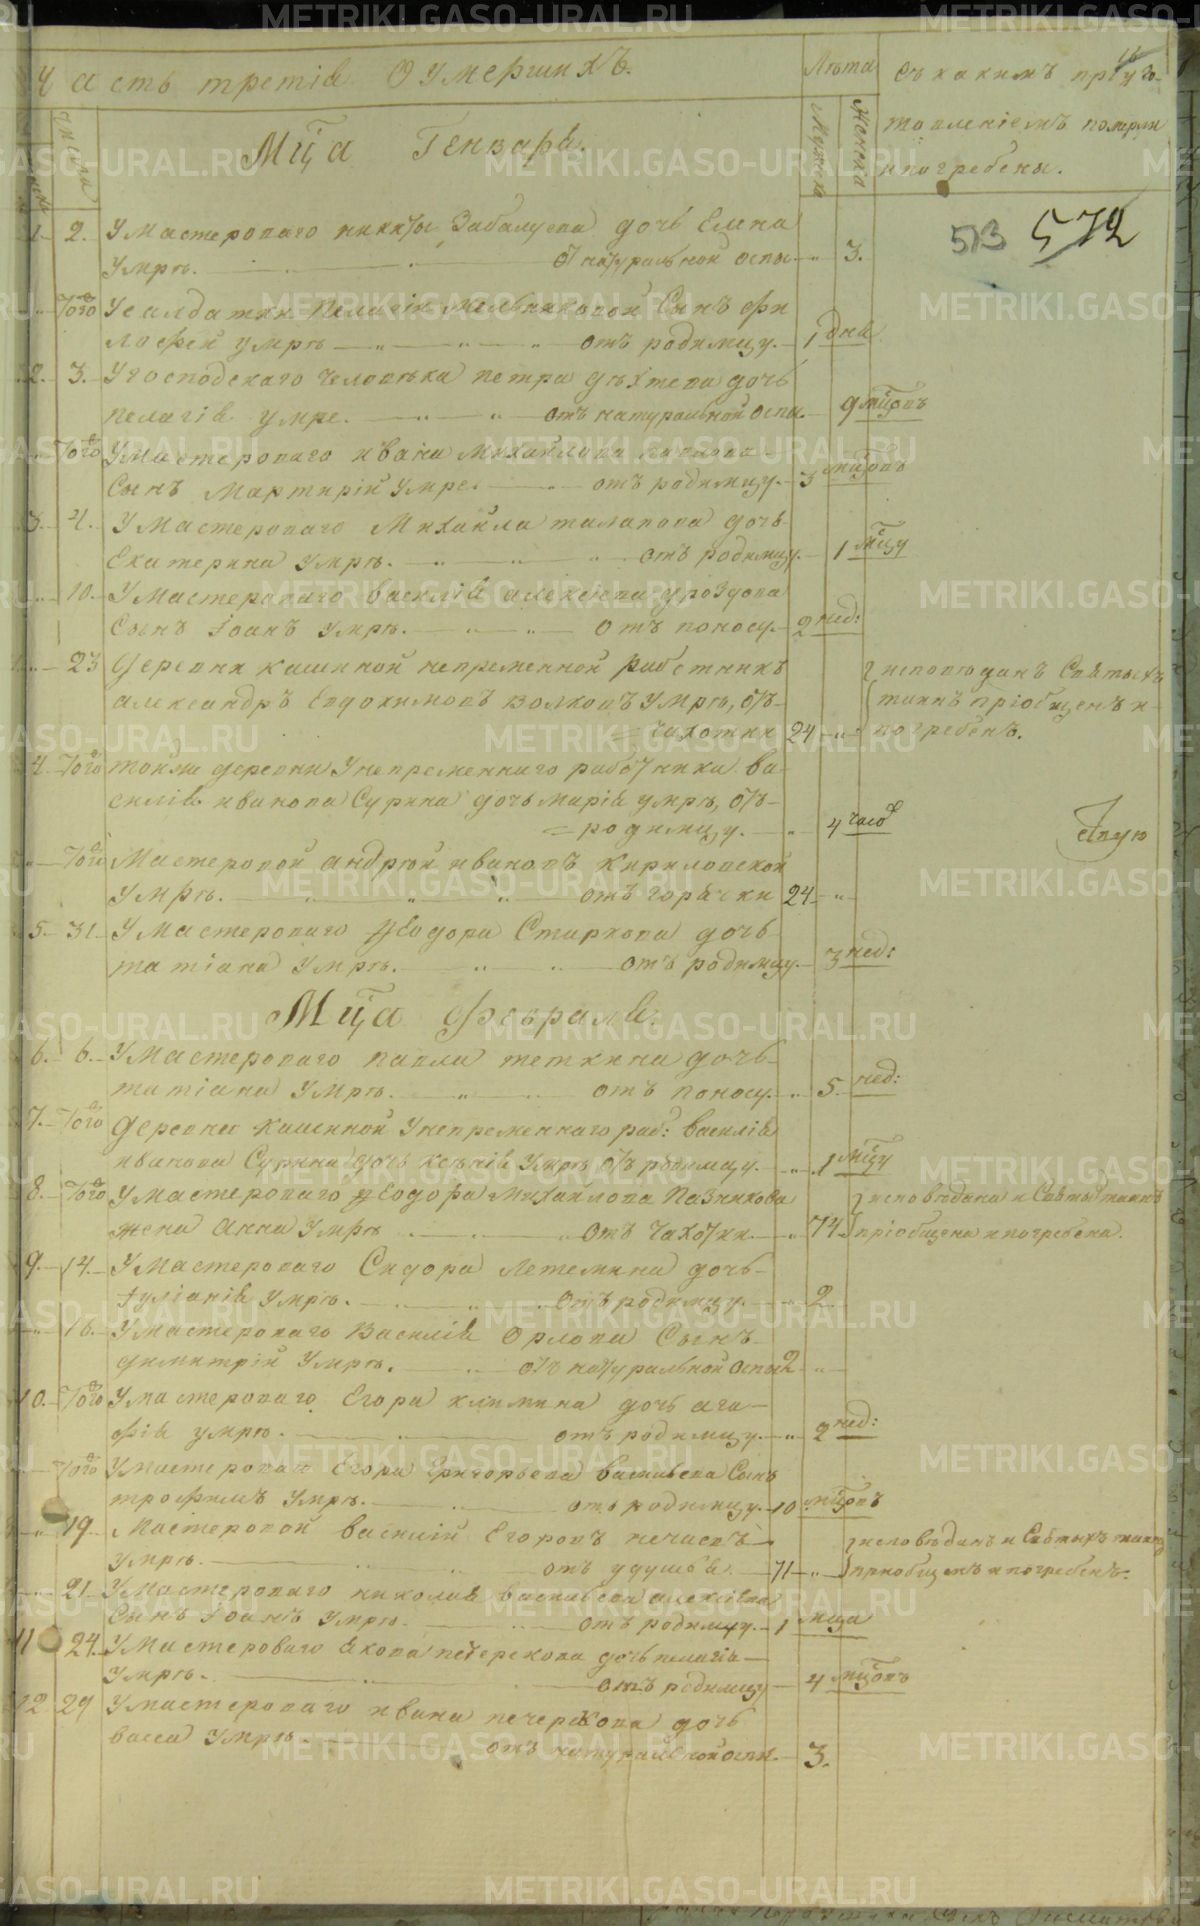 Часть третія О умершихъ.
Лѣта
Съ какимъ пріуго-
товленіемъ померли
и погребены.
числа
Мужеска
Женска
Мц͠а Генваря.
513 572
1. 2. У Мастероваго никиты Забалуева дочь Елена
Умрѣ. От натуральной оспы 3.
Того У салдатки Пелагіи Мельниковой Сынъ фи
лофей умрѣ отъ родимцу. 1 дня
2. 3. У господскаго человѣка петра дѣхтева дочь
пелагія умре. отъ натуральной оспы. 9 мцовъ
Того У Мастероваго ивана Михайлова
Сынъ Мартирій Умре. отъ родимцу. 3 мцовъ
3. 4. У Мастероваго Михаила талапова дочь
Екатерина Умрѣ. отъ родимцу. 1 мцу
10. У Мастероваго василія алексѣева дроздова
Сынъ Іоанъ Умрѣ. отъ поносу. 2 нед:
23 Деревни кашиной непременной работникъ
александръ Евдокимовъ волковъ Умрѣ, отъ
чахотки 24
исповѣданъ Святыхъ
таинъ пріобщенъ и
погребенъ.
4. Того тойже деревни У непременнаго работника ва
силія иванова Сурина дочь марія умрѣ, отъ
родимцу. 4 часо
Того Мастеровой андрѣй ивановъ Кириловской
Умрѣ. отъ горячки 24
5. 31. У Мастероваго Ѳеодора Старкова дочь
татіана Умрѣ. отъ родимцу. 3 нед:
Мц͠а Февраля.
6. 6. У Мастероваго павла теткина дочь
татіана Умрѣ. отъ поносу. 5 нед:
7. Того Деревни кашиной У непременнаго раб: василія
иванова Сурина дочь ксѣнія Умрѣ отъ родимцу. 1 мцу
8. Того У Мастероваго Ѳеодора Михайлова Пазникова
жена Анна Умрѣ отъ чахотки. 74.
исповѣдана и Святыхъ таинъ
пріобщена и погребена.
9. 14. У Мастероваго Сидора Летемина дочь
Іуліанія Умрѣ. отъ родимцу. 2
16. У Мастероваго Василія Орлова Сынъ
димитрій Умрѣ. отъ натуральной оспы 2
10. Того У мастероваго Егора климина дочь ага
фія умрѣ. отъ родимцу. 2 нед:
Того У мастероваго Егора Григорьева васильева Сынъ
трофимъ Умрѣ. отъ родимцу. 10 мцовъ
19 Мастеровой василій Егоровъ нечаевъ
Умрѣ. отъ удушья 71
исповѣданъ и Святыхъ таинъ
приобщенъ и погребенъ.
21. У Мастероваго николая васильева алексѣева
Сынъ Іоанъ Умрѣ. отъ родимцу. 1 мца
11 24. У Мастероваго Якова печеркова дочь пелагія
Умрѣ. отъ родимцу 4 мцовъ
12 29 У мастероваго ивана печеркова дочь
васса Умрѣ. отъ натуральной оспы. 3.
METRIKI.GASO-URAL.RU